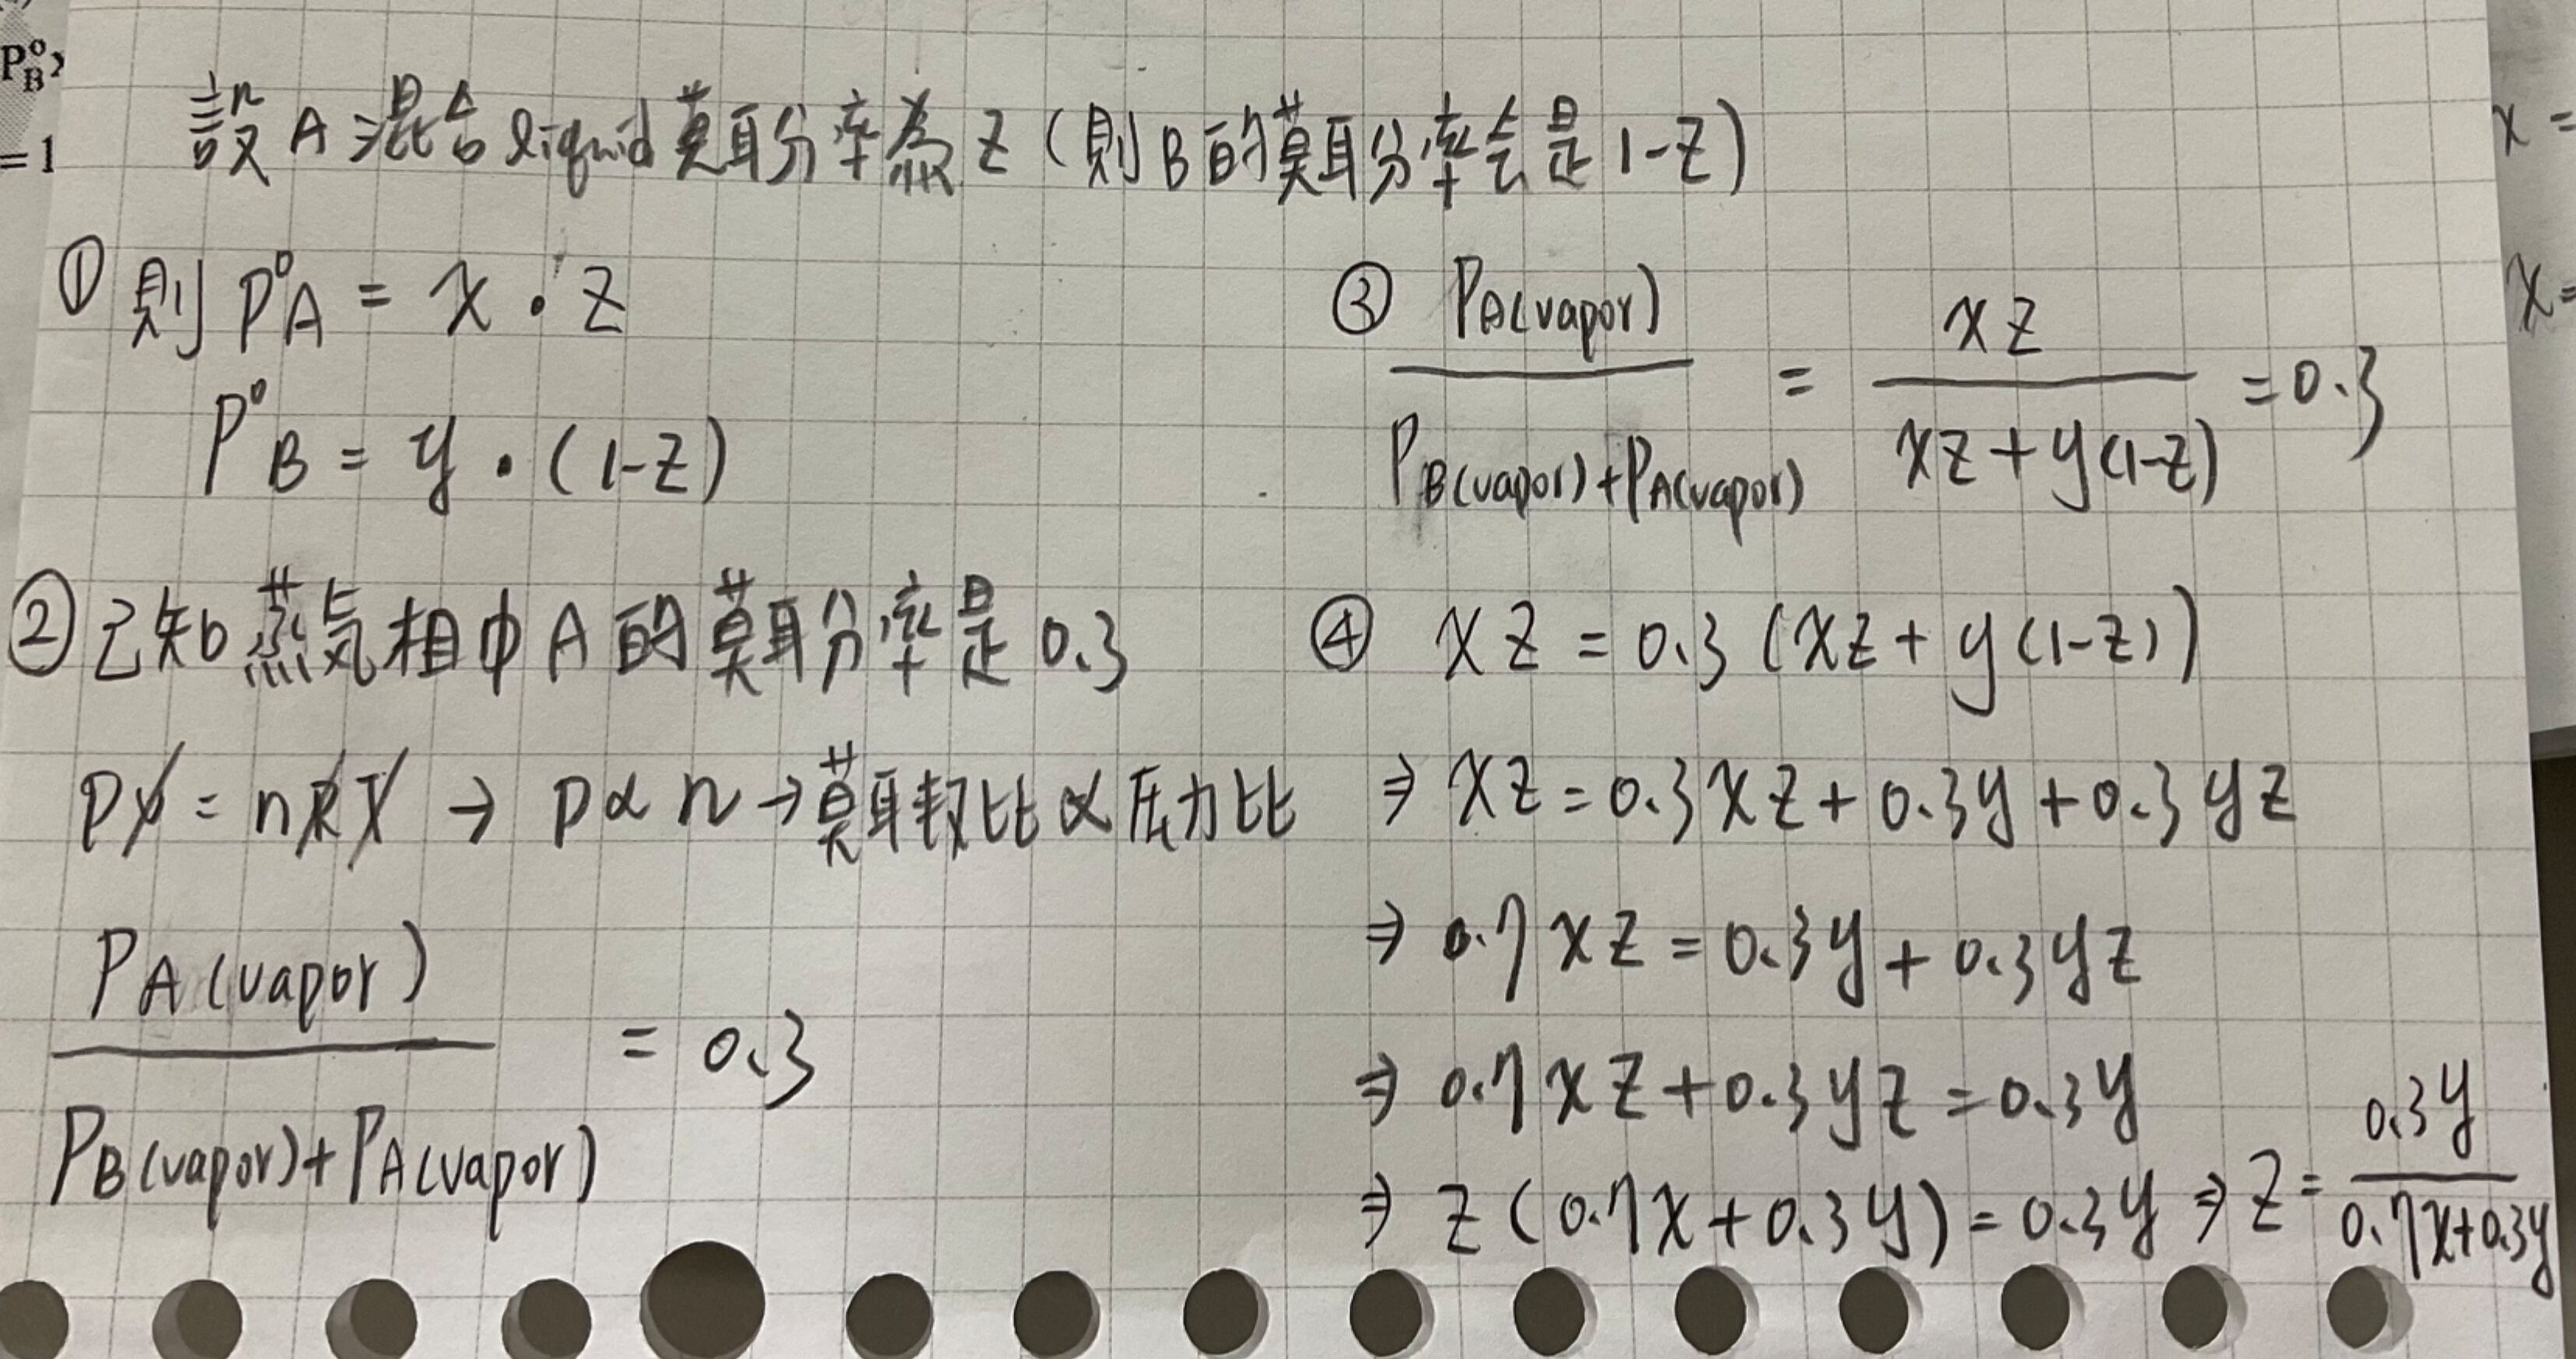 P°B,
= 1
設A混合liquid莫耳分率為Z(則B的莫耳分率会是1-Z)
x =
x =
① 則 P°A = x · Z
P°B = y · (1-Z)
② 已知蒸気相中A的莫耳分率是0.3
PV = nRT → P ∝ n → 莫耳数比 ∝ 压力比
PA(vapor) / PB(vapor)+PA(vapor) = 0.3
③ PA(vapor) / PB(vapor)+PA(vapor) = xz / xz+y(1-z) = 0.3
④ xz = 0.3 (xz + y(1-z))
⇒ xz = 0.3xz + 0.3y + 0.3yz
⇒ 0.7xz = 0.3y + 0.3yz
⇒ 0.7xz + 0.3yz = 0.3y
⇒ z(0.7x + 0.3y) = 0.3y ⇒ z = 0.3y / 0.7x+0.3y